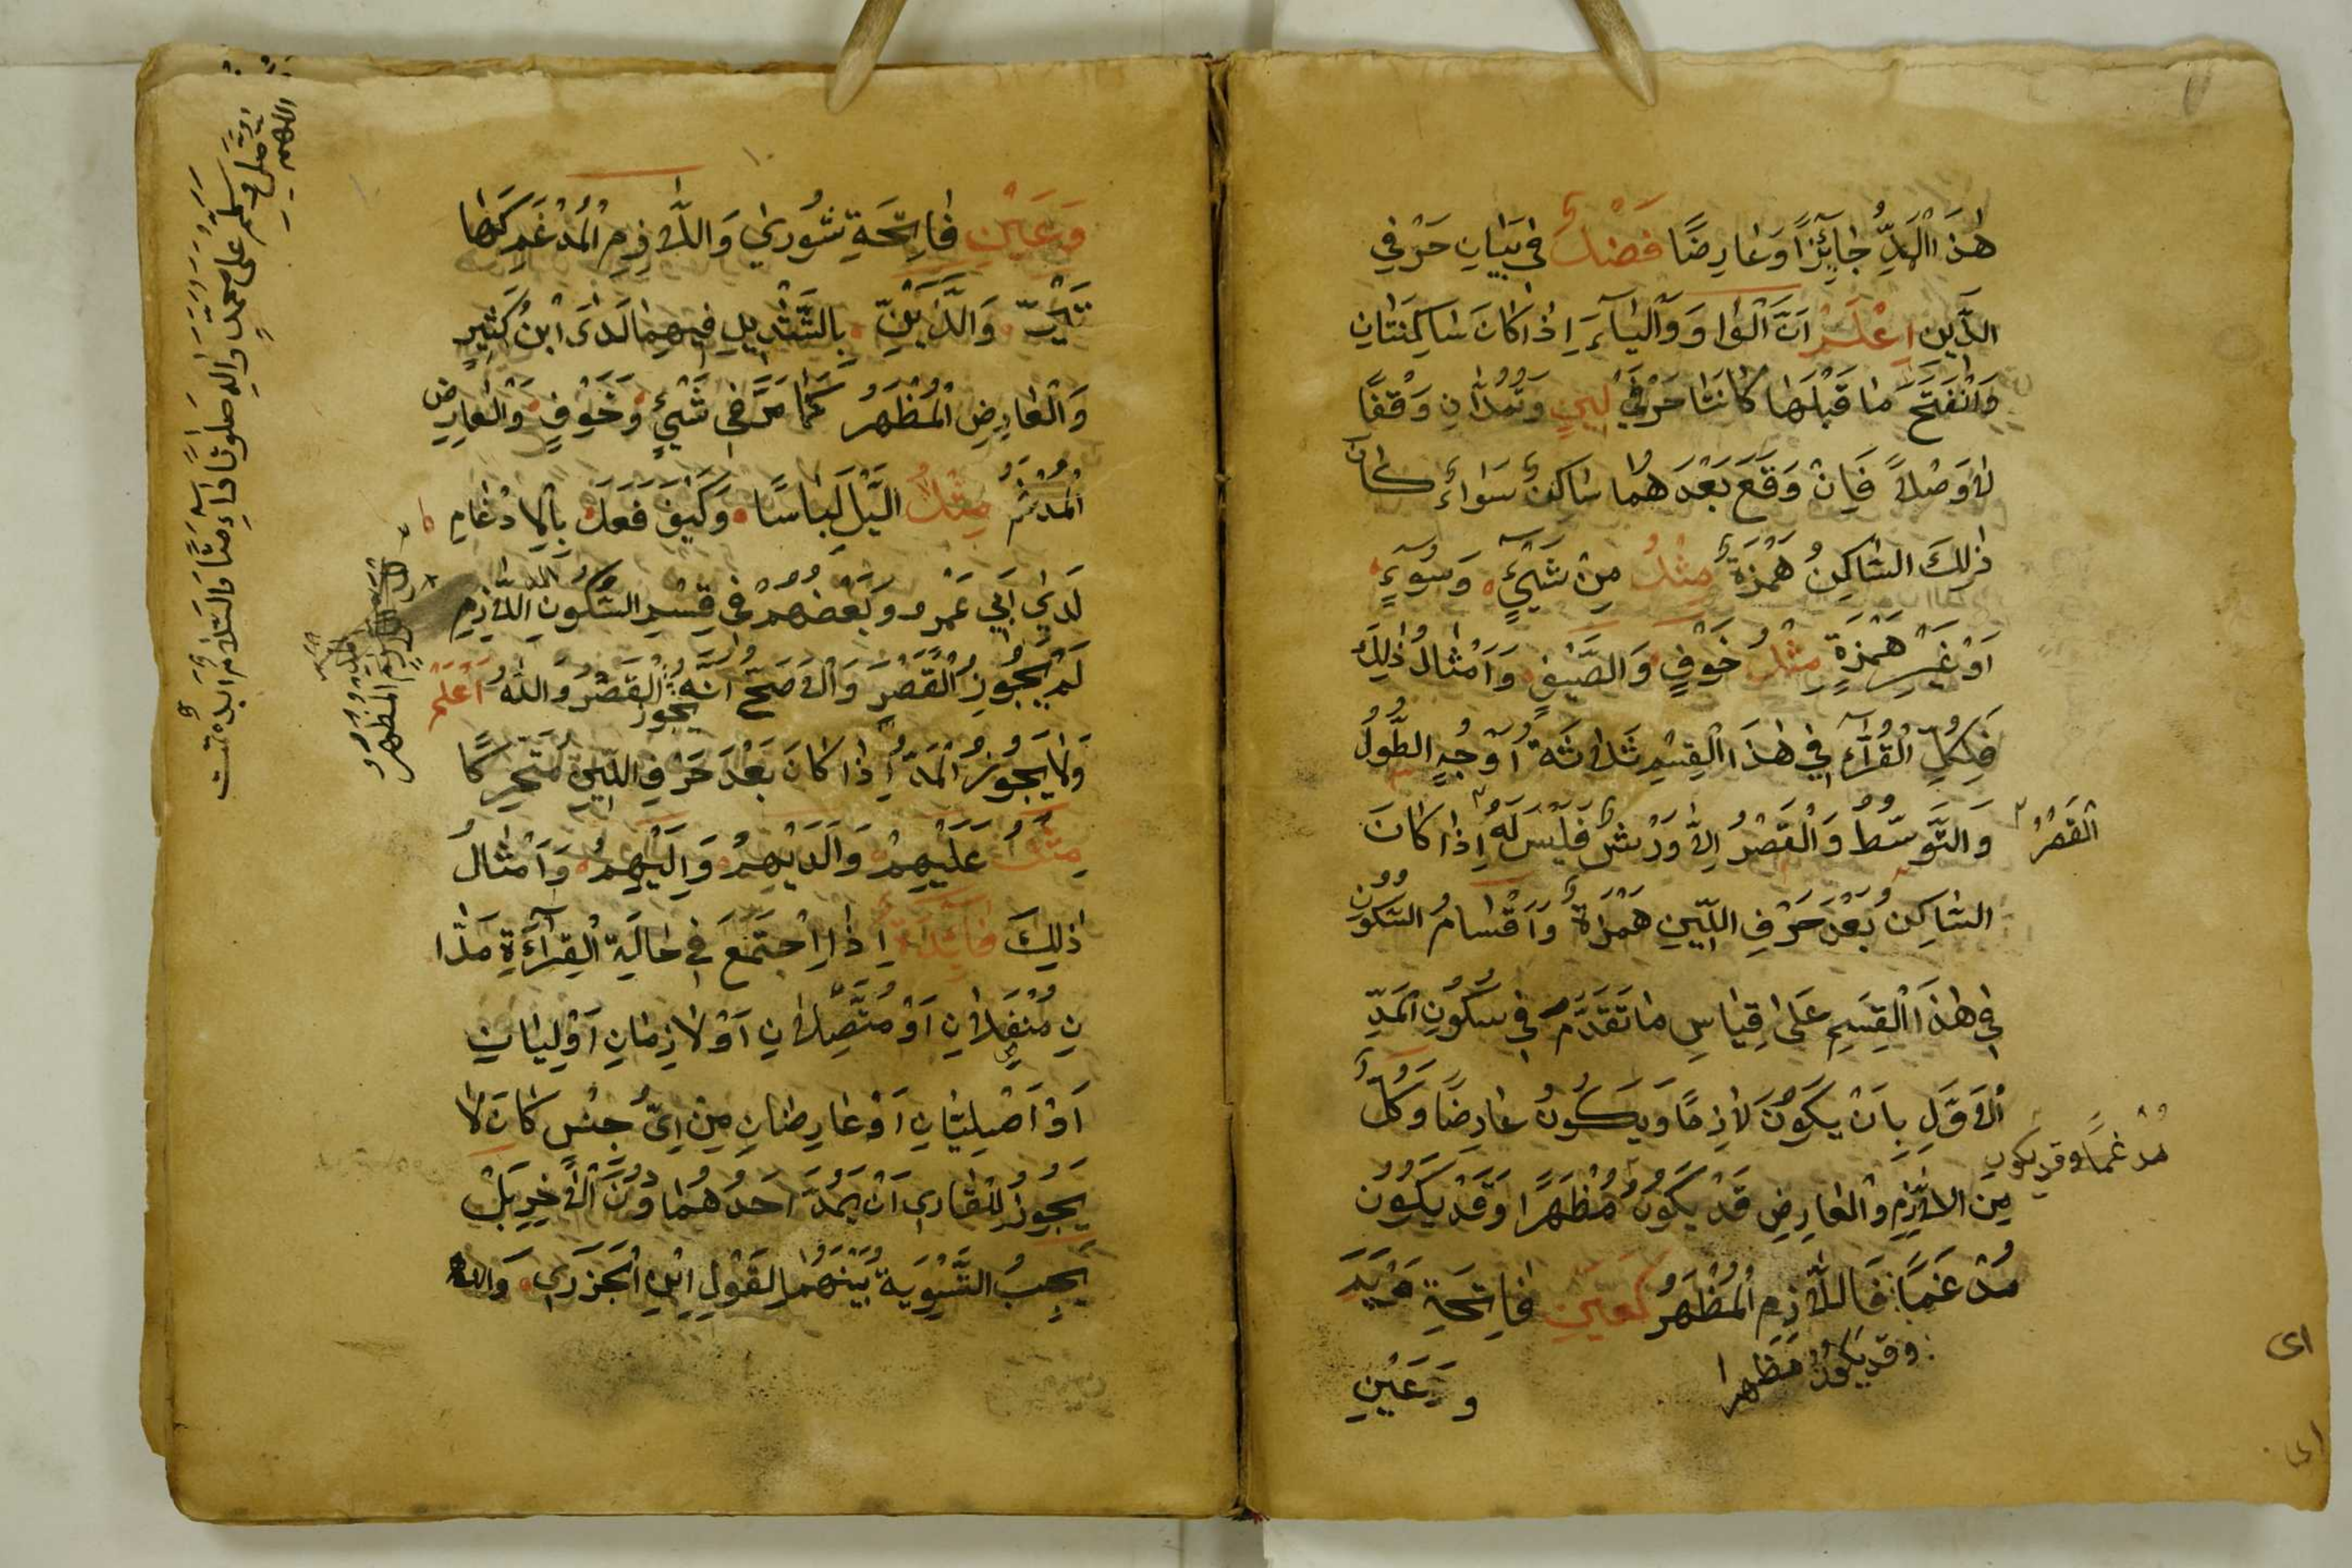 هٰذَا الْمَدِّ جَائِزًا وَعَارِضًا فَصْلٌ فِي بَيَانِ حَرْفِي
الدِّينِ اِعْلَمْ اَنَّ الْوَاوَ وَالْيَاءَ اِذَا كَانَ سَاكِنَتَانِ
وَانْفَتَحَ مَا قَبْلَهَا كَانَتَا حَرْفَيْ لِينٍ وَتُمَدَّانِ وَقْفًا
لَا وَصْلًا فَاِنْ وَقَعَ بَعْدَهُمَا سَاكِنٌ سَوَاءٌ كَانَ
ذٰلِكَ السَّاكِنُ هَمْزَةٌ مِثْلُ مِنْ شَيْءٍ وَسُوءٍ
اَوْ غَيْرَ هَمْزَةٍ مِثْلُ خَوْفٍ وَالصَّيْفِ وَاَمْثَالُ ذٰلِكَ
فَلِكُلِّ الْقُرَّاءِ فِي هٰذَا الْقِسْمِ ثَلَاثَةُ اَوْجُهٍ الطُّولُ
وَالتَّوَسُّطُ وَالْقَصْرُ اِلَّا وَرْشٌ فَلَيْسَ لَهُ اِذَا كَانَ
الْقَصْرُ
السَّاكِنُ بَعْدَ حَرْفِ اللِّينِ هَمْزَةٌ وَاَقْسَامُ السُّكُونِ
فِي هٰذَا الْقِسْمِ عَلَى قِيَاسِ مَا تَقَدَّمَ فِي سُكُونِ الْمَدِّ
الْاَوَّلِ بِاَنْ يَكُونَ لَازِمًا وَيَكُونُ عَارِضًا وَكُلٌّ
مُدْغَمًا وقد يكون
مِنَ اللَّازِمِ وَالْعَارِضِ قَدْ يَكُونُ مُظْهَرًا وَقَدْ يَكُونُ
مُدْغَمًا فَاللَّازِمِ الْمُظْهَرُ كَعَيْنِ فَاتِحَةِ مَرْيَمَ
وقد يكون مظهرا
وَعَيْنِ
وَعَيْنِ فَاتِحَةِ شُورٰي وَاللَّازِمِ الْمُدْغَمِ كَهَا
تَيْنِ وَالَّذَيْنِ بِالتَّشْدِيدِ فِيهِمَا لَدَى ابْنُ كَثِيرٍ
وَالْعَارِضِ الْمُظْهَرُ كَمَا مَرَّ فِي شَيْءٍ وَخَوْفٍ وَالْعَارِضِ
الْمُدْغَمُ مِثْلُ اللَّيْلَ لِبَاسًا وَكَيْفَ فَعَلَ بِالْاِدْغَامِ
لَدٰي اَبِي عَمْرٍو وَبَعْضُهُمْ فِي قِسْمِ السُّكُونِ اللَّازِمِ
لَمْ يَجُوزِ الْقَصْرَ وَالْاَصَحُّ اَنَّهُ يجوز الْقَصْرُ وَاللّٰهُ اَعْلَمُ
وَلَا يَجُوزُ الْمَدُّ اِذَا كَانَ بَعْدَ حَرْفِ اللِّينِ مُتَحَرِّكًا
مِثْلُ عَلَيْهِمْ وَالَدَيْهِمْ وَاِلَيْهِمْ وَاَمْثَالُ
ذٰلِكَ فَائِدَةٌ اِذَا اجْتَمَعَ فِي حَالَةِ الْقِرَاءَةِ مَدَّا
نِ مُنْفَصِلَانِ اَوْ مُتَّصِلَانِ اَوْ لَازِمَانِ اَوْ لِينَانِ
اَوْ اَصْلِيَّانِ اَوْ عَارِضَانِ مِنْ اَيِّ جِنْسٍ كَانَ لَا
يَجُوزُ لِلْقَارِي اَنْ يَمُدَّ اَحَدُهُمَا دُونَ الْاٰخِرِ بَلْ
يَجِبُ التَّسْوِيَةُ بَيْنَهُمَا لِقَوْلِ ابْنِ الْجَزَرِي وَاللّٰهُ
اللازم المظهر
اللهم
صل وسلم على محمد واله صلوتا دائمتا والسلام ابدا تمت